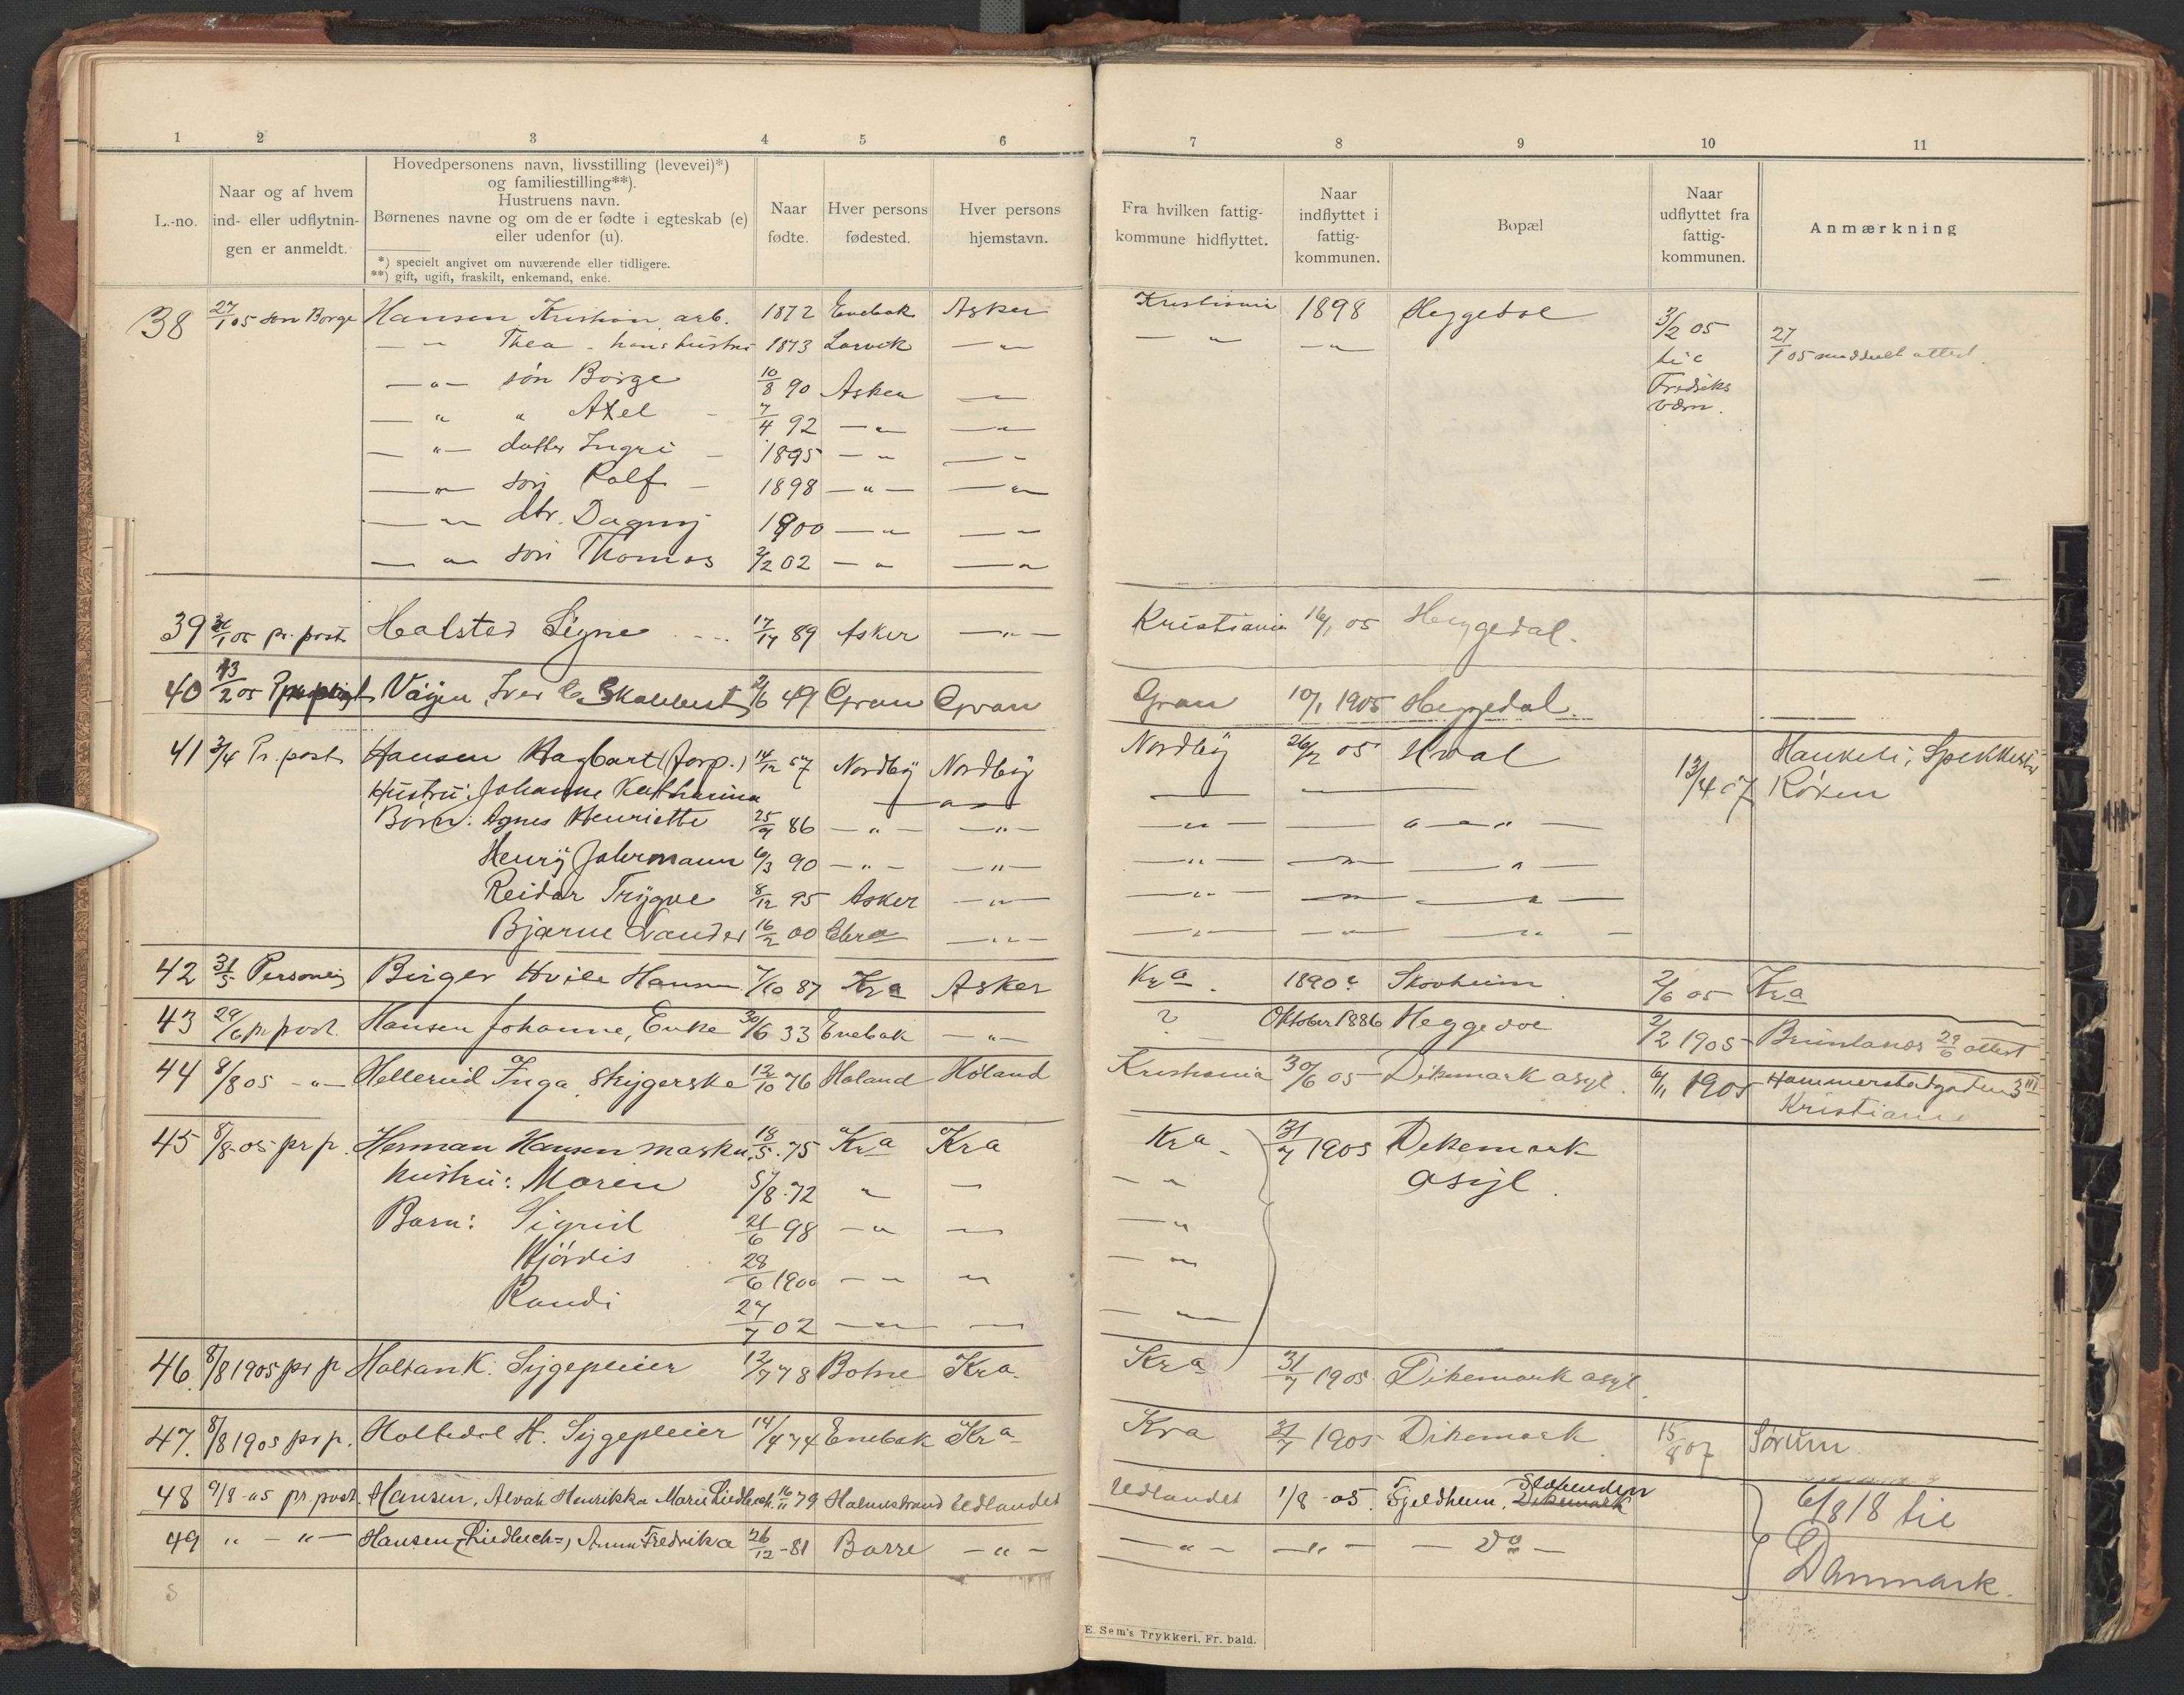 1 2 3 4 5 6
L.-no.
Naar og af hvem
ind- eller udflytnin-
gen er anmeldt.
Hovedpersonens navn, livsstilling (levevei)*)
og familiestilling**).
Hustruens navn.
Børnenes navne og om de er fødte i egteskab (e)
eller udenfor (u).
*) specielt angivet om nuværende eller tidligere.
**) gift, ugift, fraskilt, enkemand, enke.
Naar
fødte.
Hver persons
fødested.
Hver persons
hjemstavn.
38 27/1 05 søn Borge Hansen Kristian arb. 1872 Enebak Asker
— " Thea - hans hustru 1873 Larvik — "
— " — søn Borge 10/8 90 Asker —
— " " Axel - 7/4 92 — " — "
— " — datter Ingri - 1895 — " — "
— " søn Rolf - 1898 — " — — "
— " dtr. Dagny 1900 — " — "
— " søn Thomas 2/2 02 — " — "
39 31/1 05 pr. post Halsted Signe 17/17 89 Asker — " —
40 13/2 05 Vøyen, Iver E. Skabbest 2/6 49 Gran Gran
41 3/4 Pr. post Hansen Hagbart (forp.) 14/12 57 Nordby Nordby
Hustru: Johanne Katharina — " —
Børn: Agnes Henriette 25/9 86 — " — — " —
Henry Johrmann 6/3 90 — " — — " —
Reidar Trygve 8/12 95 Asker — " —
Bjarne Evander 16/2 00 — " —
42 31/5 Personlig Birger Hvile Hansen 7/10 87 Kra Asker
43 29/6 pr post. Hansen Johanne, Enke 30/6 33 Enebak — " —
44 8/8 05 — " — Hellerud Inga, strygerske 12/10 76 Høland Høland
45 8/8-05 pr p. Herman Hansen maskn. 18/5.75 Kra Kra
hustru: Maren 5/8.72 " —
Barn: Sigrid 21/6 98 — " —
Hjørdis 28/6 1900 — " "
Randi 27/7 02 — " — —
46. 8/8 1905 pr p Holtan K. Sygepleier 12/7 78 Botne Kra.
47. 8/8 1905 pr p. Holtedal H. Sygepleier 14/4 74 Enebak Kra
48 9/8-05 pr. post. Hansen, Alvah Henrikka Marie Liedbech. 16/11 79 Holmestrand Udlandet
49 " - " — Hansen (Liedbech), Anna Fredrika 26/12-81 Borre — " —
S
7 8 9 10 11
Fra hvilken fattig-
kommune hidflyttet.
Naar
indflyttet i
fattig-
kommunen.
Bopæl
Naar
udflyttet fra
fattig-
kommunen.
Anmærkning
Kristiania 1898 Heggedal 3/2 05 27/1 05 meddelt attest.
— " — " til
Fredriks
værn.
Kristiania 16/1 05 Heggedal.
Gran 10/1 1905 Heggedal.
Nordby 26/2 05 Hval 13/4 07 Haukeli, Spikkestad
Røken
— " — — " " " —
— " — — " — — " —
— " — — " — — " —
— " — — " — " —
Kra. 1890? Skovheim 2/6 05 Kra
? Oktober 1886 Heggedal 2/2 1905 Brunlanæs 29/6 attest
Kristiania 30/6 05 Dikemark asyl. 6/11 1905 Hammerstadgaden 3 III
Kristiania
Kra - 31/7 1905 Dikemark
— " asyl.
— "
— "
— "
Kra 31/7 1905 Dikemark asyl.
Kra 31/7 1905 Dikemark 15/8 07 Sørum.
Udlandet 1/8-05. Fjeldheim, Dikemark Slæbenden 6/8 18 til
— " — — " — — Do — Danmark.
E. Sem's Trykkeri, Fr. hald.
I
J
K
L
M
N
O
P